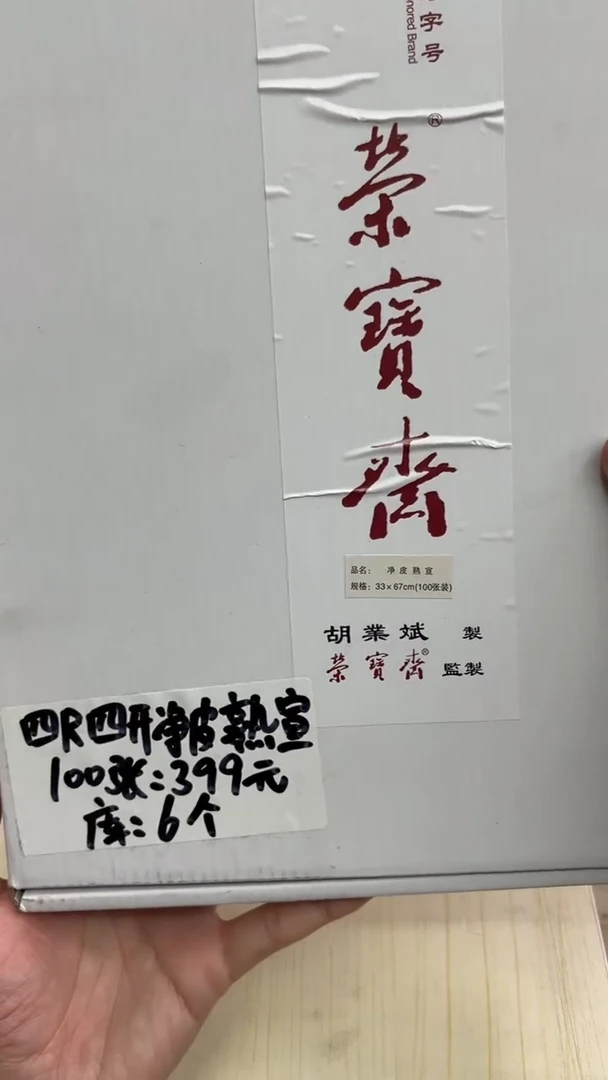 字号
nored Brand
榮寶齋®
品名： 净皮熟宣
规格：33×67cm(100张装)
胡業斌 製
榮寶齋® 監製
四尺四开净皮熟宣
100张：399元
库：6个